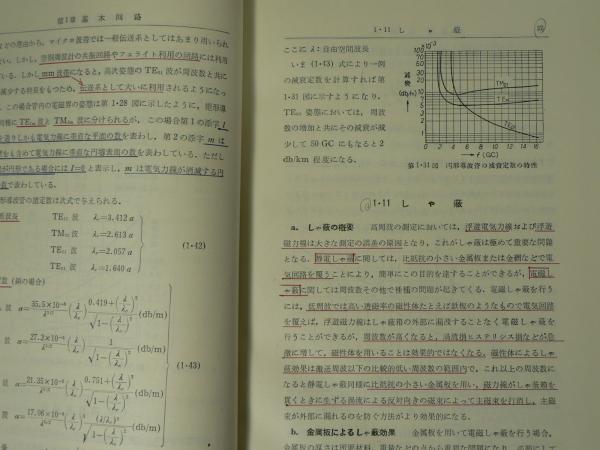 第1章 基 本 回 路
などの理由から，マイクロ波帯では一般伝送系としてはあまり用いられ
ない．しかし，空胴周波計の共振回路やフェライト利用の回路には利用
ている．しかし mm 波帯になると，高次姿態の TE₀₁ 波が周波数と共に
減少する特長をもつため，伝送系として大いに利用されるようになっ
．この場合管内の電磁界の姿態は第 1・28 図に示したように，矩形導
同様に TE 波と TM 波に分けられるが，この場合第1の添字 l
を通りしかも電力線に垂直な平面の数を表わし，第2の添字 m は
をも含めて電力線に垂直な円導表面の数を表わしている．ただし
が円形である場合には l=0 と表示し，m は電力線が消滅する円
数で表わしている．
形導波管の諸定数は次式で与えられる．
断波長 TE₁₁ 波 λc=3.412 a
TM₀₁ 波 λc=2.613 a
TE₂₁ 波 λc=2.057 a
TE₀₁ 波 λc=1.640 a
(1・42)
数（銅の場合）
波 α= 35.5×10⁻⁶/a^{3/2} (λ/λc)^{} 0.419+(λ/λc)²/√1−(λ/λc)² (db/m)
波 α= 27.2×10⁻⁶/a^{3/2} (λ/λc) 1/√1−(λ/λc)² (db/m)
波 α= 21.35×10⁻⁶/a^{3/2} (λ/λc) 0.751+(λ/λc)²/√1−(λ/λc)² (db/m)
波 α= 17.06×10⁻⁶/a^{3/2} (λ/λc) (λ/λc)²/√1−(λ/λc)² (db/m)
(1・43)
1・11 し ゃ 蔽
ここに λ：自由空間波長
いま (1・43) 式により一例
の減衰定数を計算すれば第
1・31 図に示すようになり，
TE₀₁ 姿態においては，周波
数の増加と共にその減衰が減
少して 50 GC にもなると 2
db/km 程度になる．
減衰 (db/m)
TM₀₁
TE₁₁
TE₀₁
0 2 4 6 8 10 12 14 16
→ f (GC)
第1・31図 円形導波管の減衰定数の特性
1・11 し ゃ 蔽
a. しゃ蔽の概要 高周波の測定においては，浮遊電気力線および浮遊
磁力線は大きな測定の誤差の原因となり，これがしゃ蔽は極めて重要な問題
となる．静電しゃ蔽に関しては，比抵抗の小さい金属板または金網などで電
気回路を覆うことにより，簡単にこの目的を達することができるが，電磁し
ゃ蔽に関しては周波数その他で種種の問題が起きてくる．電磁しゃ蔽を行う
には，低周波では高い透磁率の磁性体たとえば鉄板のようなもので電気回路
を覆えば，浮遊磁力線はしゃ蔽箱の外部に漏洩することなく電磁しゃ蔽を
行うことができるが，周波数が高くなると，渦流損ヒステリシス損などが急
激に増して，磁性体を用いることは効果的ではなくなる．磁性体によるしゃ
蔽効果は搬送周波以下の比較的低い周波数の範囲内で，これ以上の周波数に
なると静電しゃ蔽同様に比抵抗の小さい金属板を用い，磁力線がしゃ蔽箱を
貫くときに生ずる渦流による反対向きの磁束によって主磁束を打消し，主磁
束が外部に漏れるのを防ぐ方法がより効果的になる．
b. 金属板によるしゃ蔽効果 金属板を用いて電磁しゃ蔽を行う場合，